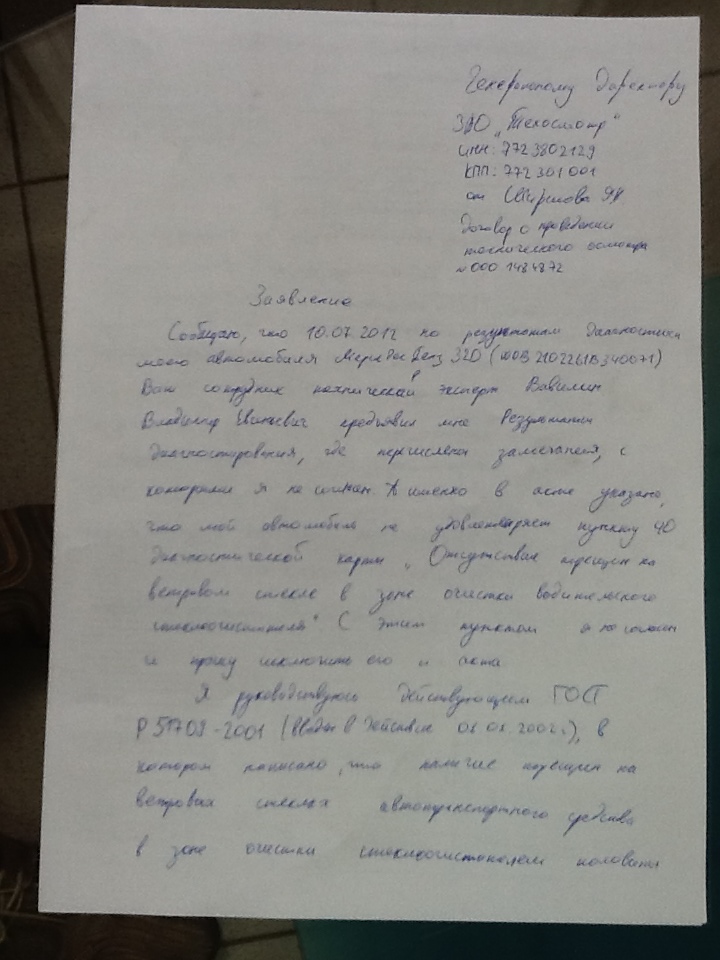 Генеральному Директору
ЗАО „Техосмотр"
ИНН: 7723802129
КПП: 772301001
от
Договор о проведении
технического осмотра
№000 1484872
Заявление
Сообщаю, что 10.07.2012 по результатам диагностики
моего автомобиля Мерседес Бенц 320
Ваш сотрудник технический эксперт Вавилин
Владимир предъявил мне Результаты
диагностирования, где перечислены замечания, с
которыми я не согласен. А именно в акте указано,
что мой автомобиль не удовлетворяет пункту 40
диагностической карты „Отсутствие трещин на
ветровом стекле в зоне очистки водительского
стеклоочистителя" С этим пунктом я не согласен
и прошу исключить его и акта
Я руководствуюсь действующем ГОСТ
Р 51709-2001 (введен в действие 01.01.2002г), в
котором написано, что наличие трещин на
ветровых стеклах автотранспортного средства
в зоне очистки стеклоочистителем половины